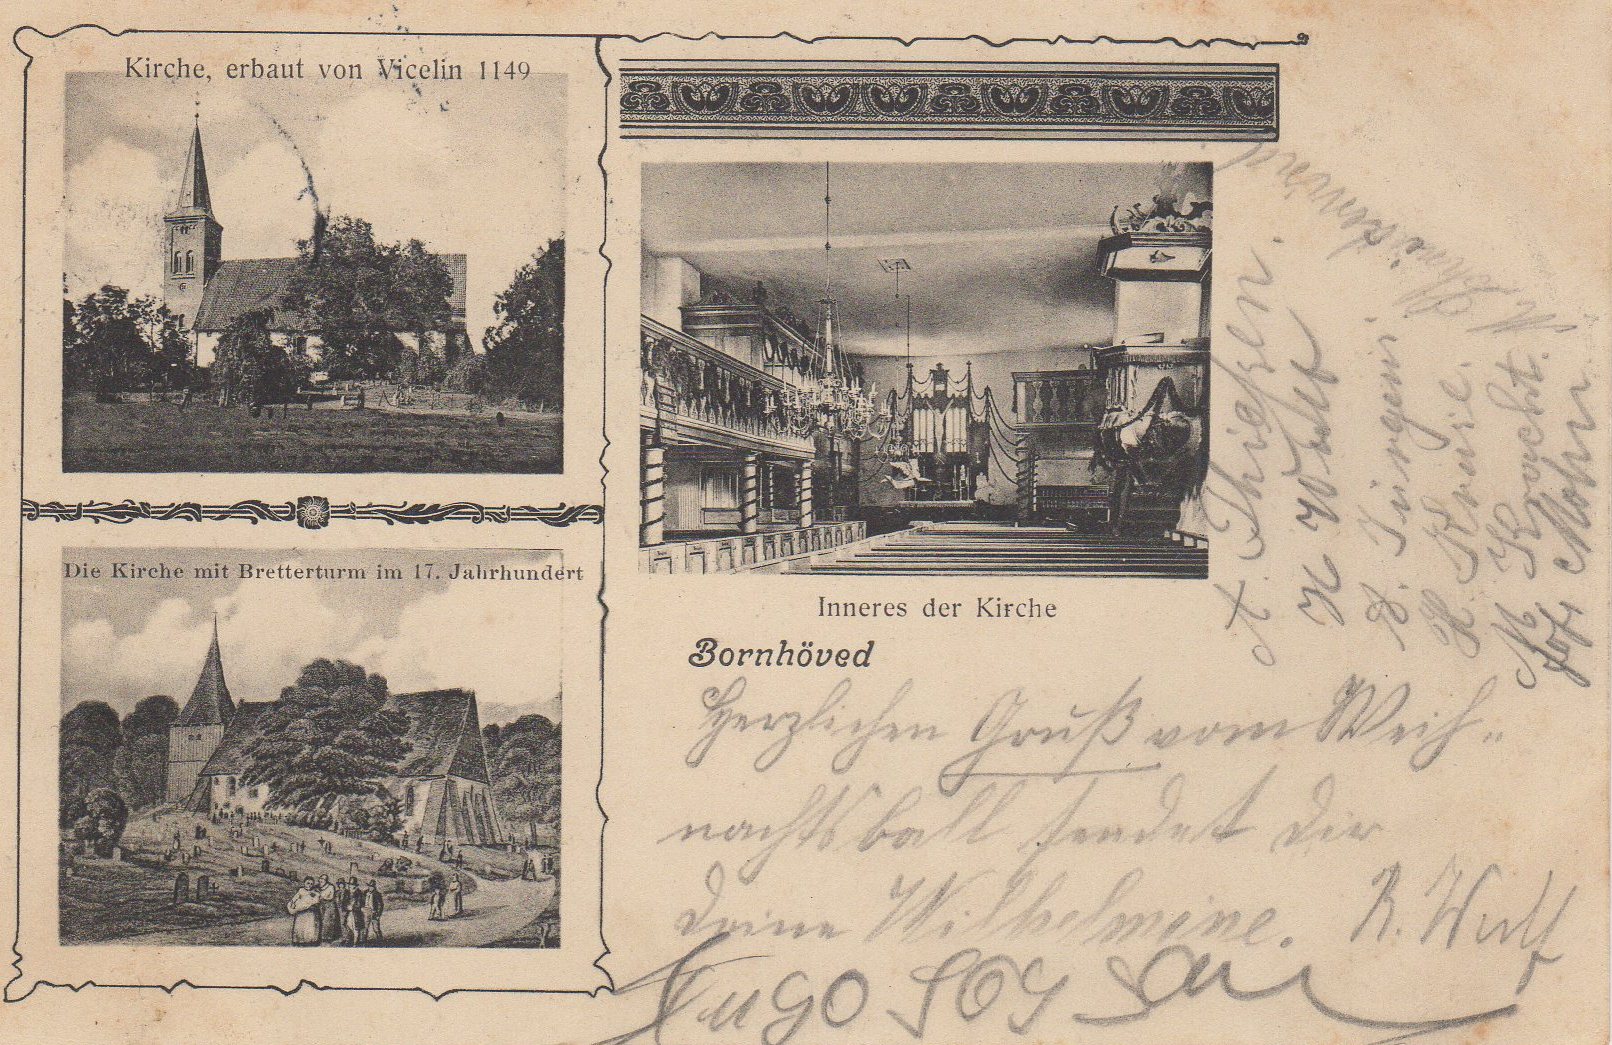 Kirche, erbaut von Vicelin 1149
Die Kirche mit Bretterturm im 17. Jahrhundert
Inneres der Kirche
Bornhöved
Herzlichen Gruß vom Weih-
nachtsball sendet Dir
Deine Wilhelmine. R. Wulf
Hugo
A. Thießen.
H Wulf
H. Kruse.
M Kracht.
Mohr